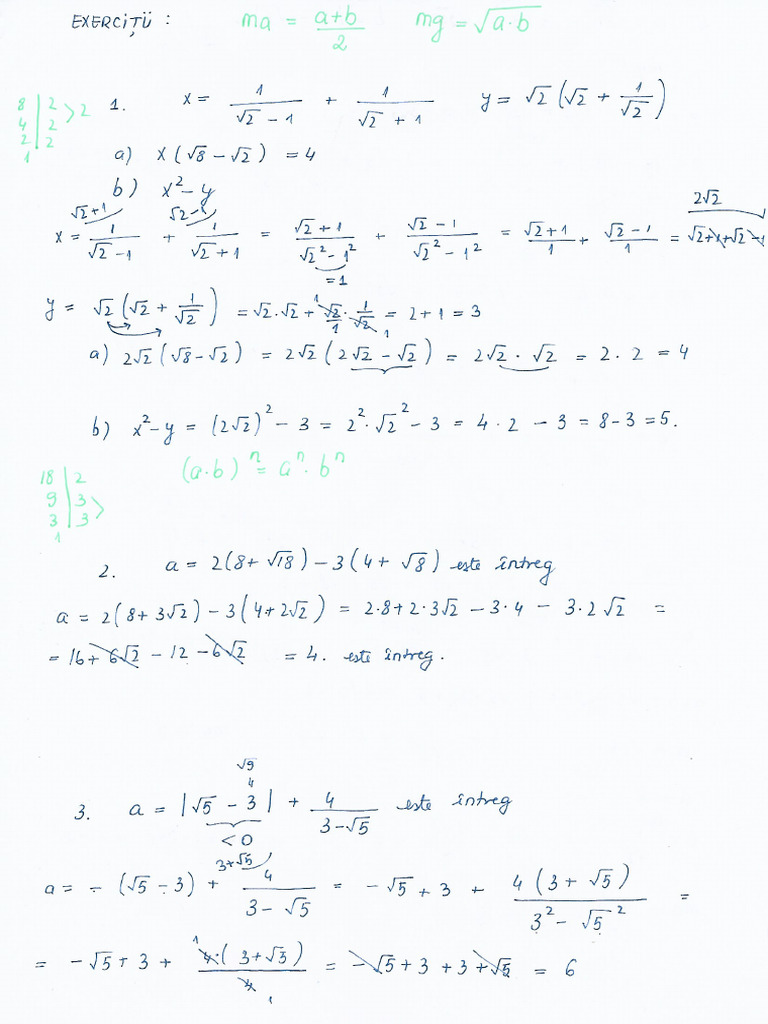 EXERCIȚII : ma = (a+b)/2 mg = √(a·b)
8 | 2 > 2
4 | 2
2 | 2
1
1. x = 1/(√2 - 1) + 1/(√2 + 1) y = √2 (√2 + 1/√2)
a) x (√8 - √2) = 4
b) x² - y
√2+1 √2-1 2√2
x = 1/(√2 - 1) + 1/(√2 + 1) = (√2 + 1)/(√2² - 1²) + (√2 - 1)/(√2² - 1²) = (√2 + 1)/1 + (√2 - 1)/1 = √2+1+√2-1
=1
y = √2 (√2 + 1/√2) = √2·√2 + √2/1 · 1/√2 = 2 + 1 = 3
a) 2√2 (√8 - √2) = 2√2 (2√2 - √2) = 2√2 · √2 = 2 · 2 = 4
b) x² - y = (2√2)² - 3 = 2²·√2² - 3 = 4 · 2 - 3 = 8 - 3 = 5.
(a·b)ⁿ = aⁿ · bⁿ
18 | 2
9 | 3 >
3 | 3
1
2. a = 2(8 + √18) - 3(4 + √8) este întreg
a = 2(8 + 3√2) - 3(4 + 2√2) = 2·8 + 2·3√2 - 3·4 - 3·2√2 =
= 16 + 6√2 - 12 - 6√2 = 4. este întreg.
√9
4
3. a = |√5 - 3| + 4/(3 - √5) este întreg
< 0
3+√5
a = - (√5 - 3) + 4/(3 - √5) = - √5 + 3 + 4(3 + √5)/(3² - √5²) =
= - √5 + 3 + 4·(3 + √5)/4 = - √5 + 3 + 3 + √5 = 6